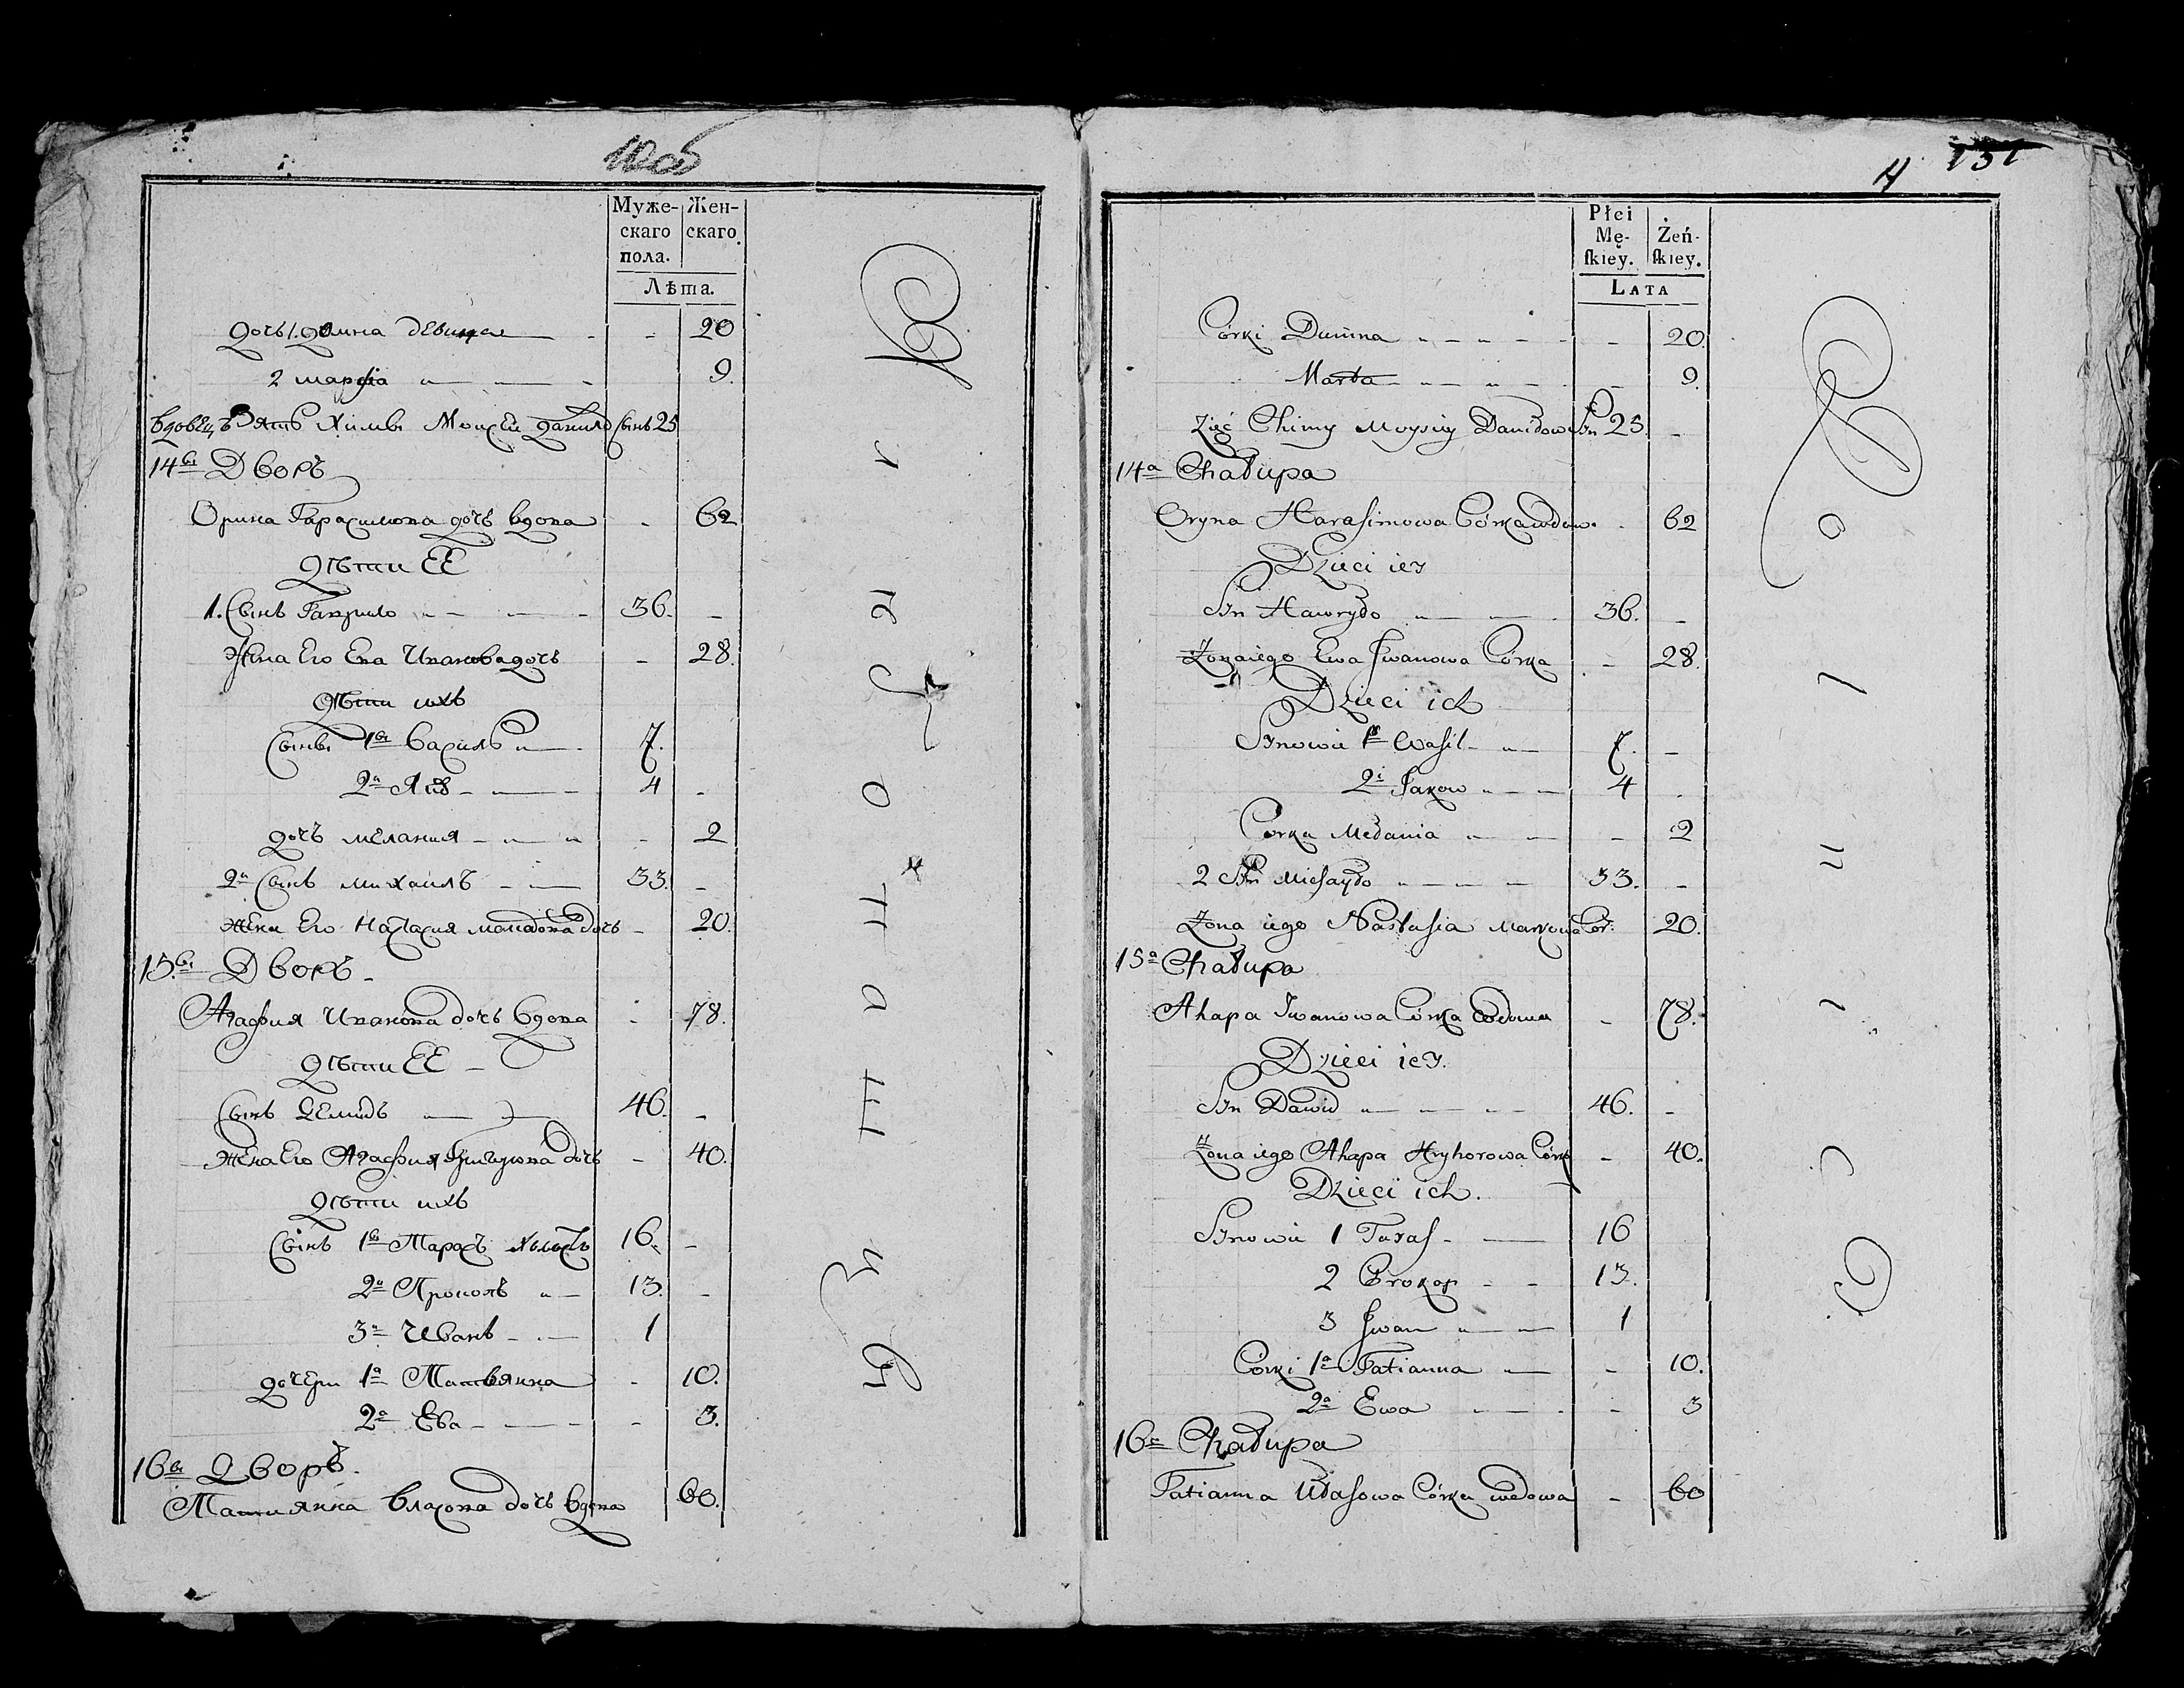 10об
Муже-
скаго
пола.
Жен-
скаго.
Лѣта.
дочь 1. Домна девица 20
2 марѳа 9.
вдовец Зять Химы Моисей Данило Сынъ 25
14й Дворъ
Орина Гарасимова дочь вдова 62
Дѣти ЕЕ
1. Сынъ Гаврило 36.
Жена Его Ева Иванова дочь 28.
Дѣти ихъ
Сыны 1й василь 7.
2й Яков 4
дочь мелания 2
2й Сынъ михаилъ 33.
жена Его Настасия дочь 20.
15й Дворъ
Агафия Иванова дочь вдова 78.
Дѣти ЕЕ
Сынъ Демидъ 46.
Жена Его Агафия Григорова дочь 40.
Дѣти ихъ
Сынъ 1й Тарасъ холостъ 16.
2й Прокопъ 13.
3й Иванъ 1
дочери 1я Татьянна 10.
2я Ева 3.
16й Дворъ.
Татиянна власова дочь вдова 60.
4 131
Płci
Mę-
ſkiey.
Żeń-
ſkiey.
LATA
Córki Dumna 20.
Marta 9.
Zięć Chimy Moysiy Daniłow Syn 25.
14a Chałupa
Oryna Harasimowa Córka wdow. 62
Dzieci iey
Syn Hawryło 36.
Żona iego Ewa Iwanowa Córka 28.
Dzieci ich
Synowie 1 Wasil 7.
2i Jakow 4
Córka Mełania 2
2 Syn Michayło 33.
Żona iego Nastasia Markowa Cór. 20.
15a Chałupa
Ahapa Iwanowa Córka wdowa 78.
Dzieci iey.
Syn Dawid 46.
Żona iego Ahapa Hryhorowa Córk 40.
Dzieci ich.
Synowie 1 Taras 16
2 Prokop 13.
3 Iwan 1
Córki 1a Tatianna 10.
2a Ewa 3
16a Chałupa
Tatianna Własowa Córka wdowa 60